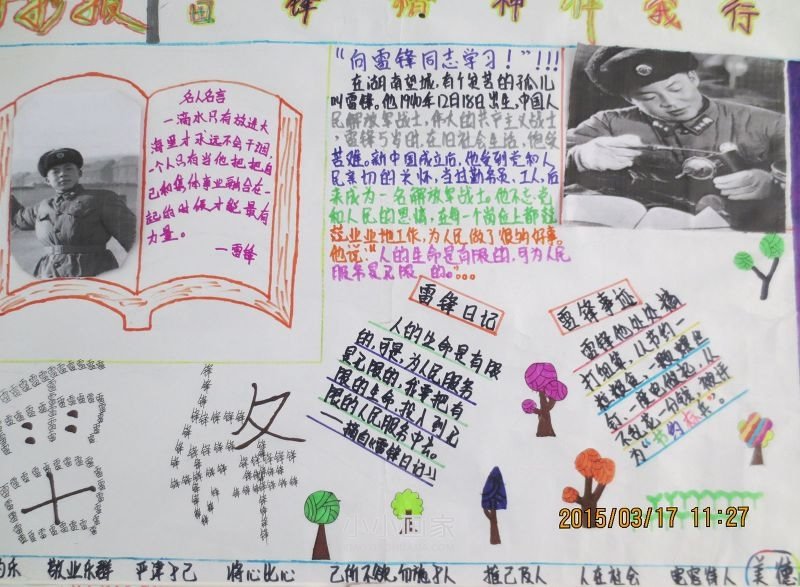 雷 锋 精 神 伴 我 行
名人名言
一滴水只有放进大
海里才永远不会干涸,
一个人只有当他把自
己和集体事业融合在一
起的时候才能最有
力量。
—雷锋
“向雷锋同志学习！”!!!
在湖南望城,有个贫苦的孤儿
叫雷锋。他1940年12月18日出生,中国人
民解放军战士,伟大的共产主义战士
。雷锋5岁时,在旧社会生活,他受
苦难。新中国成立后,他受到党和人
民亲切的关怀,当过勤务员、工人,后
来成为一名解放军战士。他不忘党
和人民的恩情,在每一个岗位上都兢
兢业业地工作,为人民做了很多好事。
他说:“人的生命是有限的,可为人民
服务是无限的。”...
雷锋日记
人的生命是有限
的,可是,为人民服务
是无限的,我要把有
限的生命,投入到无
限的为人民服务中去。
——摘自《雷锋日记》
雷锋事迹
雷锋他处处精
打细算,从节约一
为“节约标兵”。
雷
锋
小小画家
2015/03/17 11:27
敬业乐群 严于律己 将心比心 己所不欲,勿施于人 推己及人 人在社会